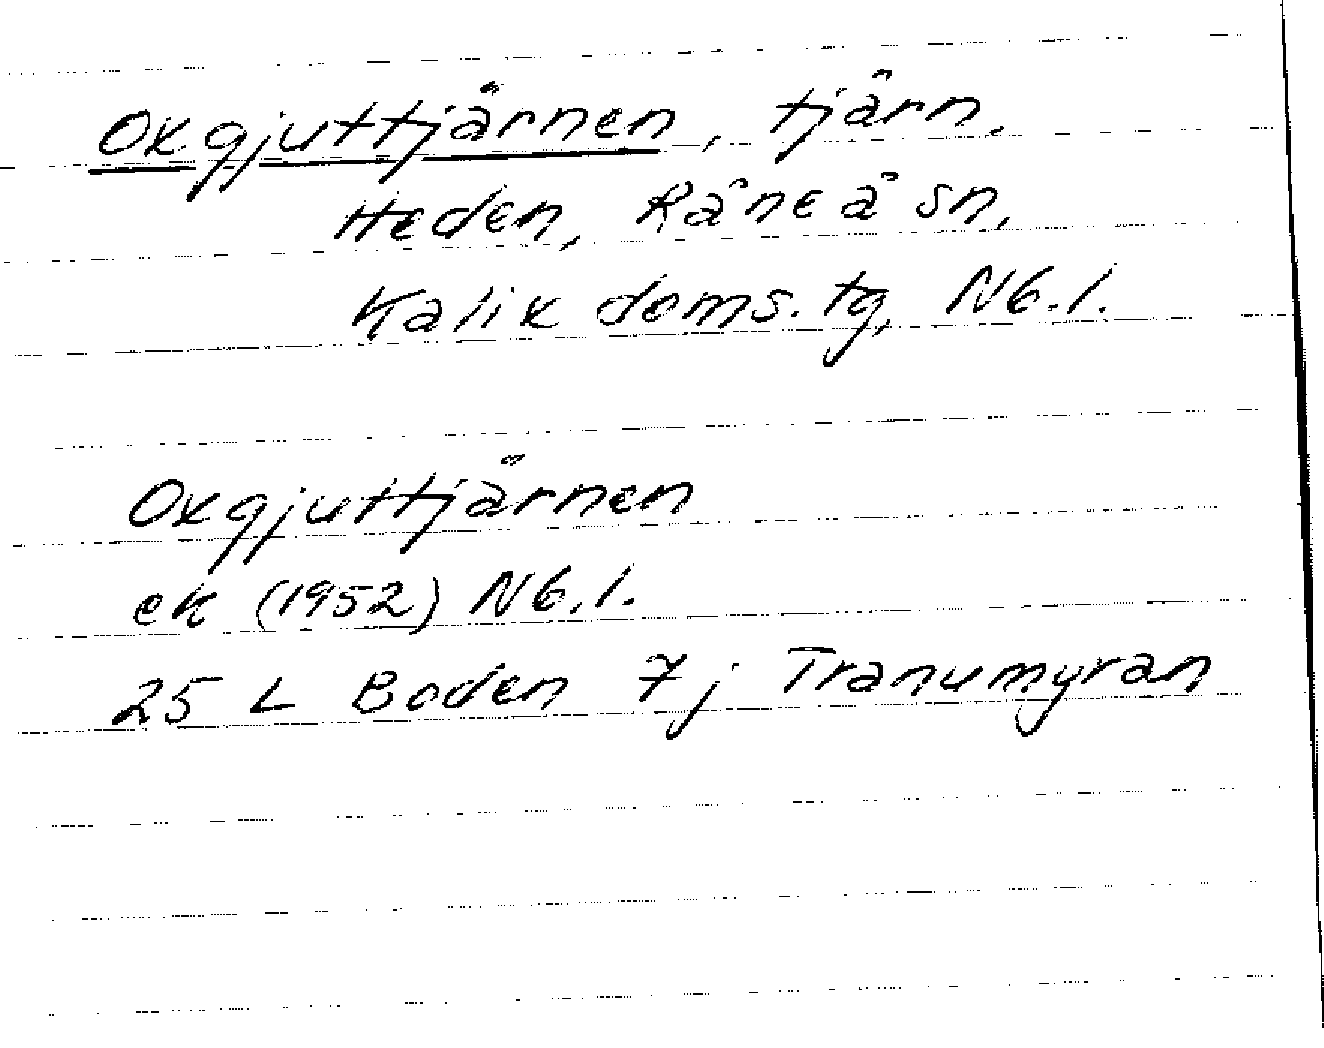 Okgjuttjärnen, tjärn.
Heden, Råneå sn,
Kalix doms. tg, Nb.l.
Okgjuttjärnen
ek (1952) Nb.l.
25 L Boden 7j Tranumyran